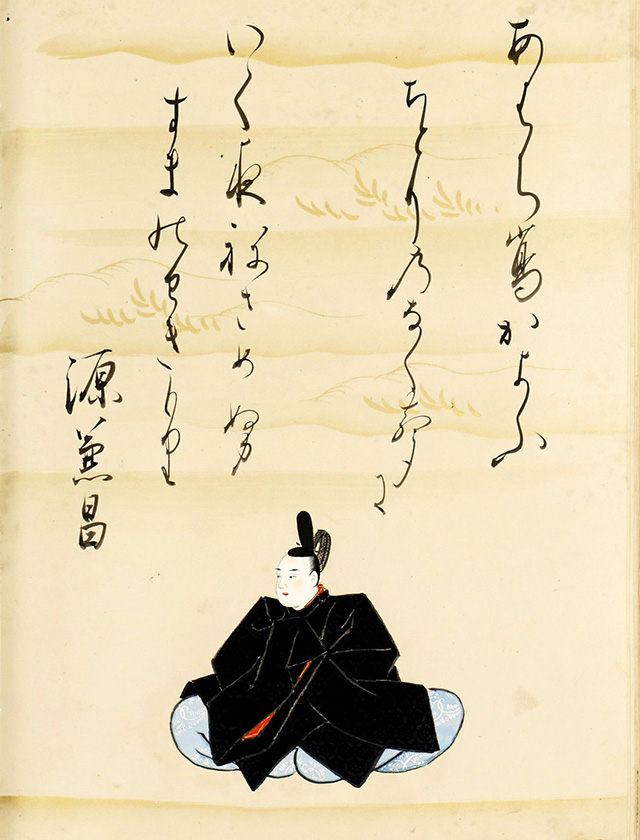 あはち嶌かよふ
ちとりのなく聲に
いく夜ねさめぬ
すまのせきもり
源兼昌